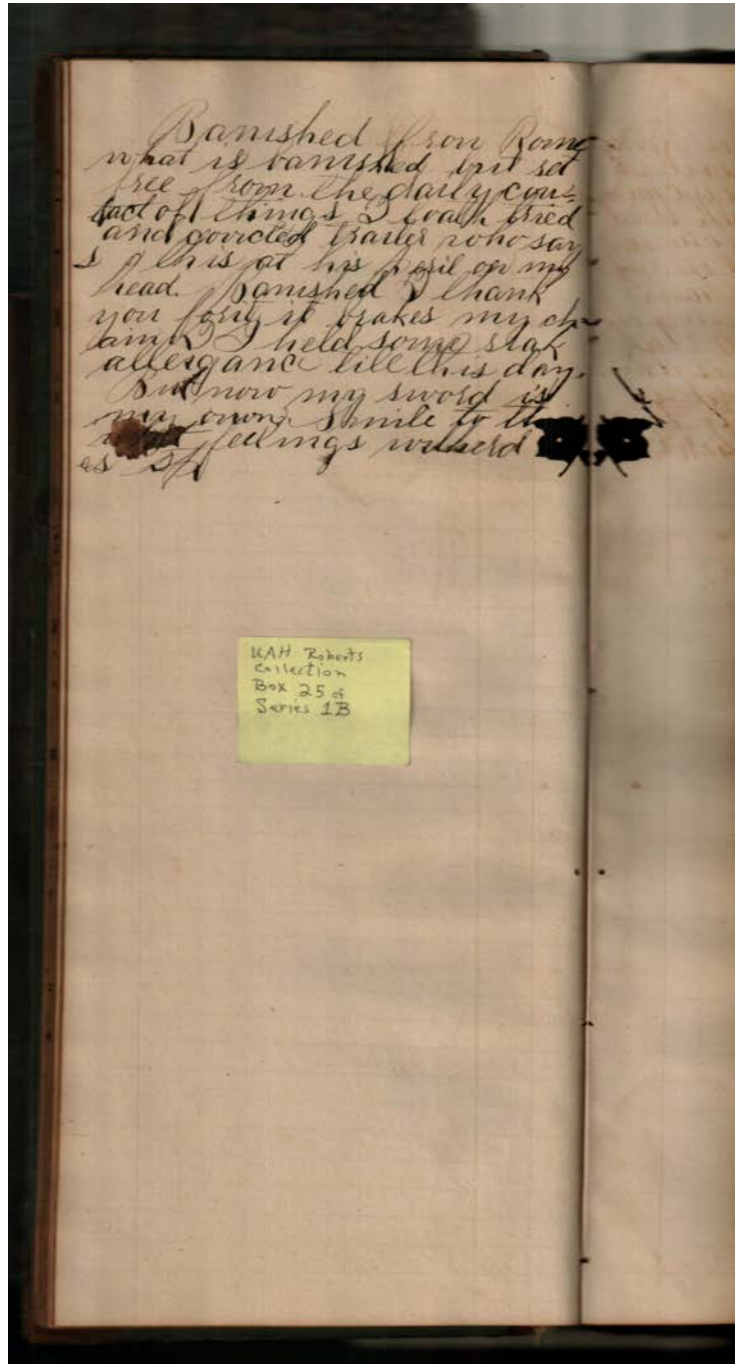 Banished from Rome
what is banished but set
free from the daily con=
tact of things I loath tried
and covicted traiter who say
s this at his peril on my
head. Banished I thank
you for it it brakes my ch-
ain I held some slak
allergance till this day.
But now my sword is
my owon. Smile to th
feelings
as
UAH Roberts
Collection
Box 25 of
Series 1B